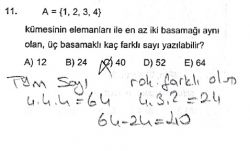 11. A = {1, 2, 3, 4}
kümesinin elemanları ile en az iki basamağı aynı
olan, üç basamaklı kaç farklı sayı yazılabilir?
A) 12 B) 24 C) 40 D) 52 E) 64
Tüm Sayı rak. farklı olan
4.4.4=64 4.3.2=24
64-24=40